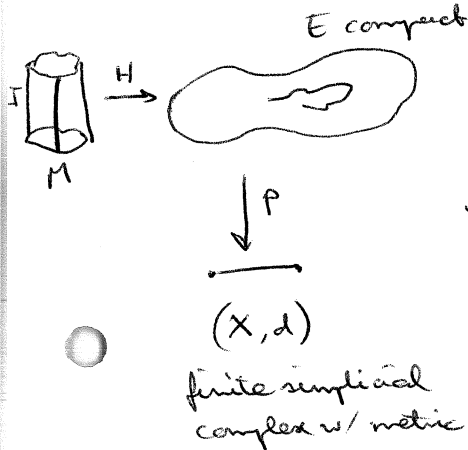 E compact
H
I
M
P
(X, d)
finite simplicial
complex w/ metric